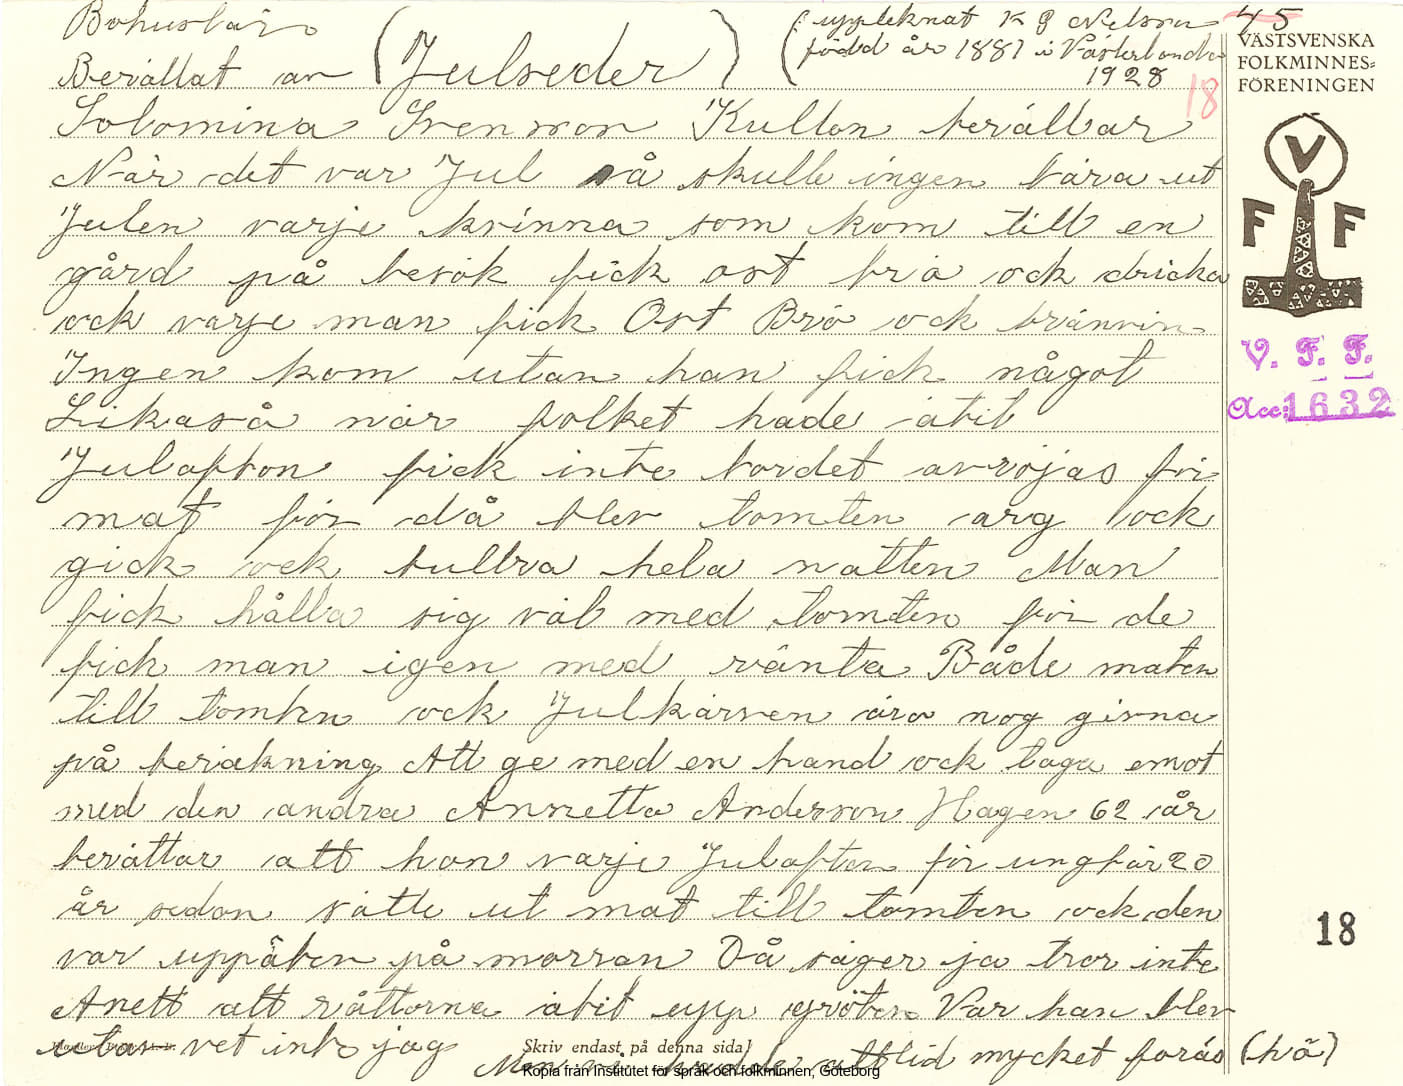 Bohuslän
Berättat av
(Julseder)
(upptecknat K G Nelson
född år 1881 i Västerlanda
1928
45
18
VÄSTSVENSKA
FOLKMINNES=
FÖRENINGEN
V
F F
V. F. F.
Acc: 1632
Solomina Svensson Kullen berättar
När det var Jul så skulle ingen bära ut
Julen varje kvinna som kom till en
gård på besök fick ost brö ock dricka
ock varje man fick Ost Brö ock bränvin
Ingen kom utan han fick något
Likaså när folket hade ätit
Julafton fick inte bordet avröjas för
mat för då blev tomten arg ock
gick ock bullra hela natten Man
fick hålla sig väl med tomten för de
fick man igen med ränta Både maten
till tomten ock Julkärven äro nog givna
på beräkning Att ge med en hand ock taga emot
med den andra Annetta Anderson Hagen 62 år
berättar att hon varje Julafton för ungfär 20
år sedan sätte ut mat till tomten ock den
var uppäten på morran Då säger ja tror inte
Anett att råttorna ätit upp gröten Var han blev
utav vet inte jag
Men vi hadde alltid mycket foräo (hö)
Skriv endast på denna sida!
18
Kopia från Institutet för språk och folkminnen, Göteborg